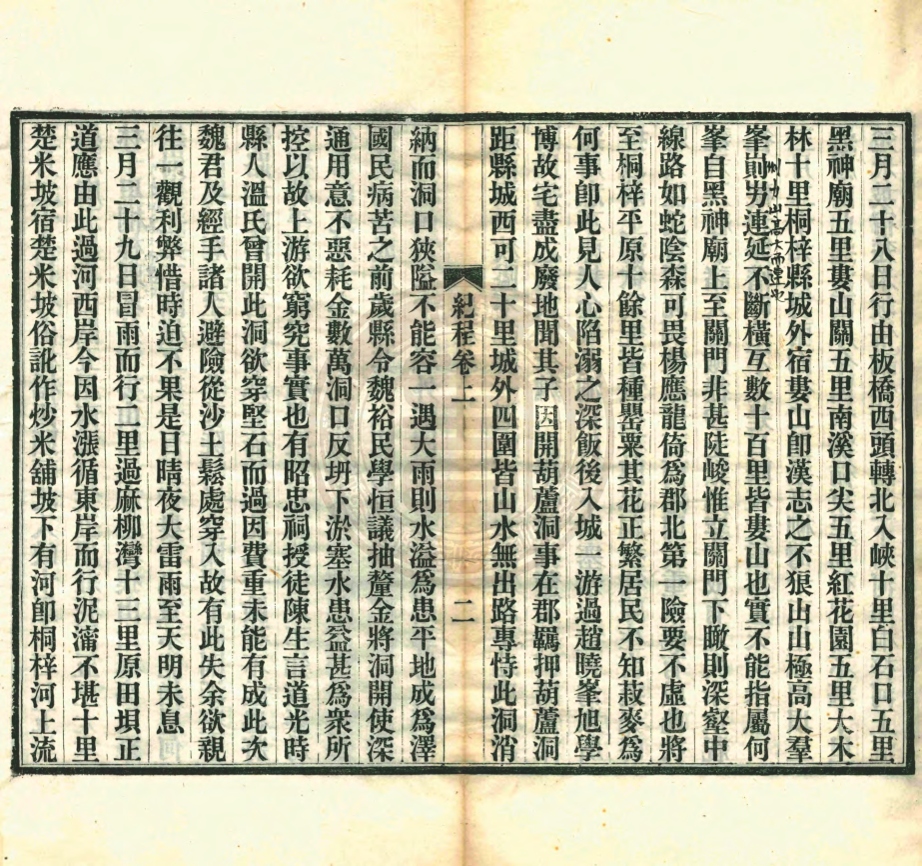 三月二十八日行由板橋西頭轉北入峽十里白石口五里
黑神廟五里婁山關五里南溪口尖五里紅花園五里大木
林十里桐梓縣城外宿婁山卽漢志之不狼山山極高大羣
峯崱屴連延不斷橫亙數十百里皆婁山也實不能指屬何
山高大而連也
峯自黑神廟上至關門非甚陡峻惟立關門下瞰則深壑中
線路如蛇陰森可畏楊應龍倚爲郡北第一險要不虛也將
至桐梓平原十餘里皆種罌粟其花正繁居民不知菽麥爲
何事卽此見人心陷溺之深飯後入城一游過趙曉峯旭學
博故宅盡成廢地聞其子因開葫蘆洞事在郡羈押葫蘆洞
距縣城西可二十里城外四圍皆山水無出路專恃此洞消
紀程卷上
二
納而洞口狹隘不能容一遇大雨則水溢爲患平地成爲澤
國民病苦之前歲縣令魏裕民學恒議抽釐金將洞開使深
通用意不惡耗金數萬洞口反坍下淤塞水患益甚爲衆所
控以故上游欲窮究事實也有昭忠祠授徒陳生言道光時
縣人溫氏曾開此洞欲穿堅石而過因費重未能有成此次
魏君及經手諸人避險從沙土鬆處穿入故有此失余欲親
往一觀利弊惜時迫不果是日晴夜大雷雨至天明未息
三月二十九日冒雨而行二里過麻柳灣十三里原田垻正
道應由此過河西岸今因水漲循東岸而行泥濘不堪十里
楚米坡宿楚米坡俗訛作炒米舖坡下有河卽桐梓河上流